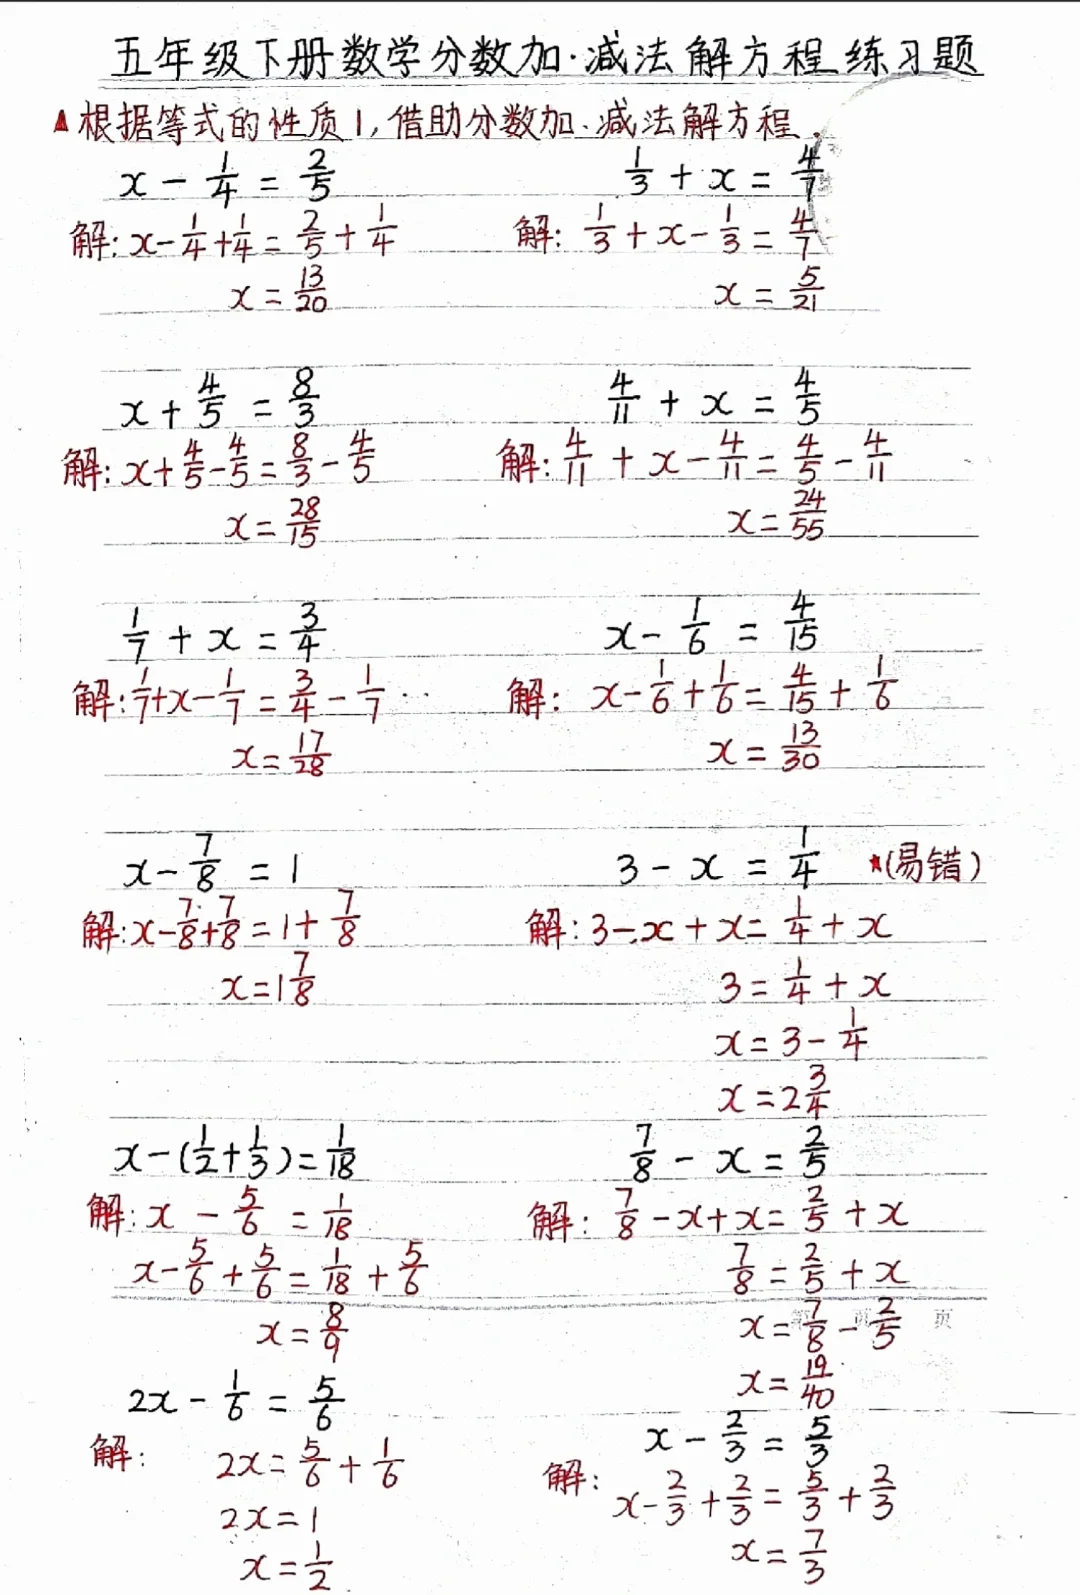 五年级下册数学分数加·减法解方程练习题
▲根据等式的性质1,借助分数加、减法解方程.
x - 1/4 = 2/5
解: x - 1/4 + 1/4 = 2/5 + 1/4
x = 13/20
1/3 + x = 4/7
解: 1/3 + x - 1/3 = 4/7
x = 5/21
x + 4/5 = 8/3
解: x + 4/5 - 4/5 = 8/3 - 4/5
x = 28/15
4/11 + x = 4/5
解: 4/11 + x - 4/11 = 4/5 - 4/11
x = 24/55
1/7 + x = 3/4
解: 1/7 + x - 1/7 = 3/4 - 1/7
x = 17/28
x - 1/6 = 4/15
解: x - 1/6 + 1/6 = 4/15 + 1/6
x = 13/30
x - 7/8 = 1
解: x - 7/8 + 7/8 = 1 + 7/8
x = 1 7/8
3 - x = 1/4 ★(易错)
解: 3 - x + x = 1/4 + x
3 = 1/4 + x
x = 3 - 1/4
x = 2 3/4
x - (1/2 + 1/3) = 1/18
解: x - 5/6 = 1/18
x - 5/6 + 5/6 = 1/18 + 5/6
x = 8/9
7/8 - x = 2/5
解: 7/8 - x + x = 2/5 + x
7/8 = 2/5 + x
x = 7/8 - 2/5
x = 19/40
第 页 页
2x - 1/6 = 5/6
解: 2x = 5/6 + 1/6
2x = 1
x = 1/2
x - 2/3 = 5/3
解: x - 2/3 + 2/3 = 5/3 + 2/3
x = 7/3